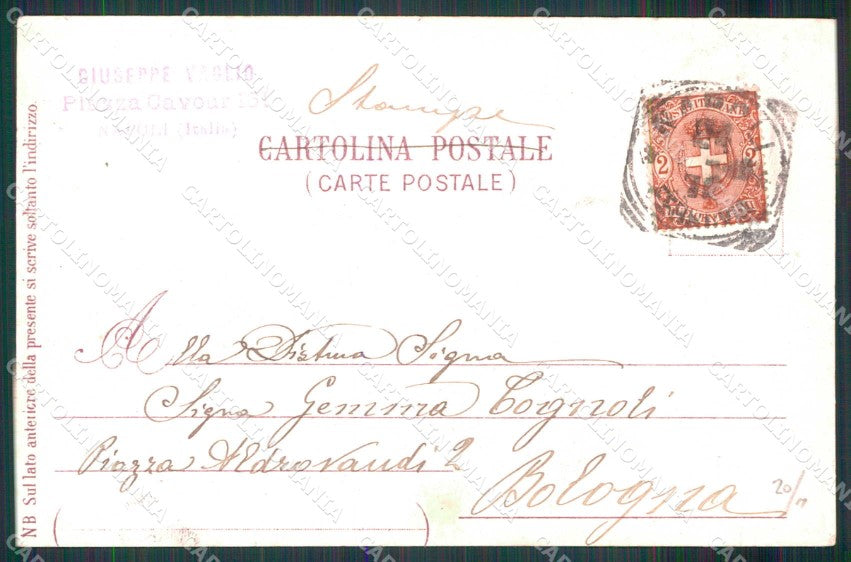 GIUSEPPE VAGLIO
Piazza Cavour
NAPOLI (Italia)
Stampe
CARTOLINA POSTALE
(CARTE POSTALE)
2 2
Alla Distma Sigma
Signa Gemma Cognoli
Piazza Aldrovandi 2
Bologna
20/11
NB Sul lato anteriore della presente si scrive soltanto l'indirizzo.
CARTOLINOMANIA